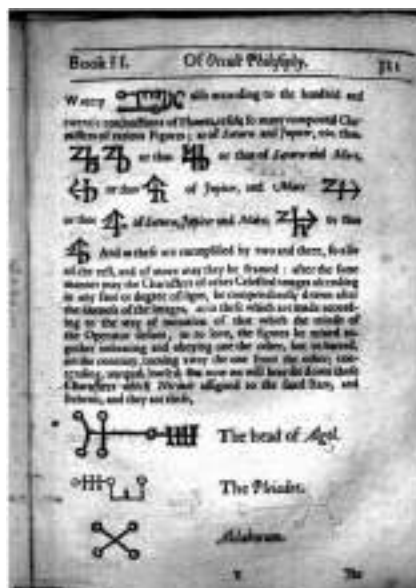 Book II. Of Occult Philosophy. 321
Watry also according to the hundred and
twenty conjunctions of Planets, result so many compound Cha-
racters of various Figures; as of Saturn and Jupiter, viz. thus,
or thus or thus of Saturn and Mars,
or thus of Jupiter, and Mars
or thus of Saturn, Jupiter and Mars, or thus
And as these are exemplified by two and three, so also
of the rest, and of more may they be framed: after the same
manner may the Characters of other Celestial images ascending
in any face or degree of signs, be compendiously drawn after
the likeness of the images, as in these which are made accord-
ing to the way of imitation of that which the mind of
the Operator desires, as to love, the figures be mixed to-
gether imbracing and obeying one the other, but to hatred,
on the contrary, turning away the one from the other, con-
tending, unequal, loosed. But now we will here set down those
Characters which Hermes assigned to the fixed stars, and
Behenii, and they are these,
The head of Algol.
The Pleiades.
Aldaboram.
Y The